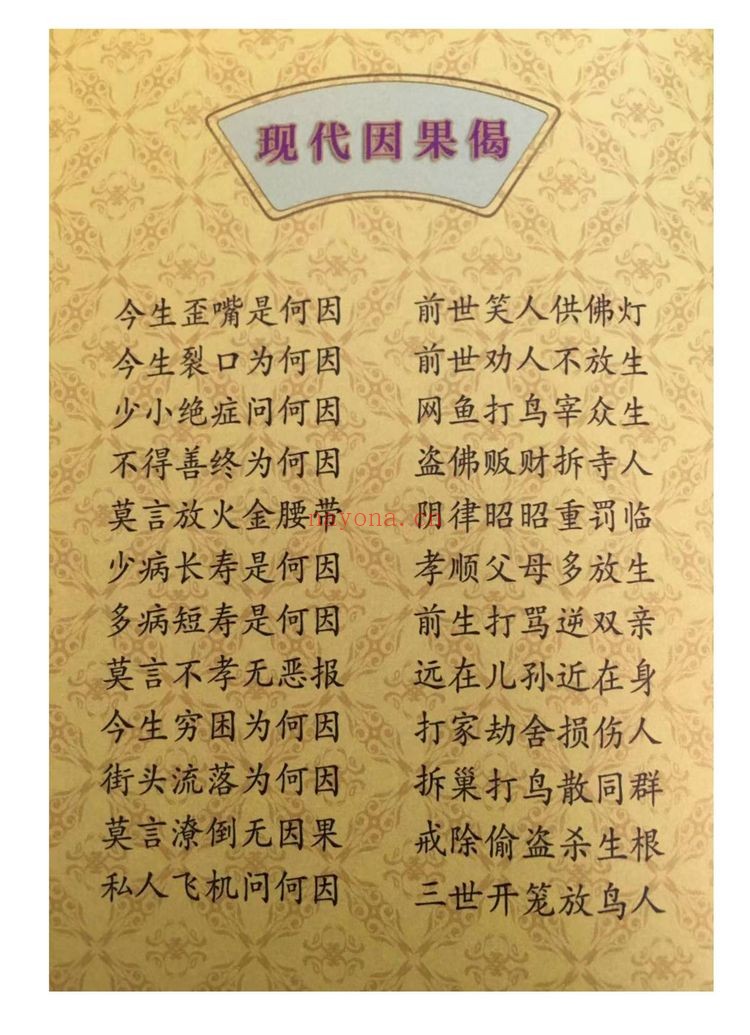 现代因果偈
今生歪嘴是何因 前世笑人供佛灯
今生裂口为何因 前世劝人不放生
少小绝症问何因 网鱼打鸟宰众生
不得善终为何因 盗佛贩财拆寺人
莫言放火金腰带 阴律昭昭重罚临
少病长寿是何因 孝顺父母多放生
多病短寿是何因 前生打骂逆双亲
莫言不孝无恶报 远在儿孙近在身
今生穷困为何因 打家劫舍损伤人
街头流落为何因 拆巢打鸟散同群
莫言潦倒无因果 戒除偷盗杀生根
私人飞机问何因 三世开笼放鸟人
nayona.cn